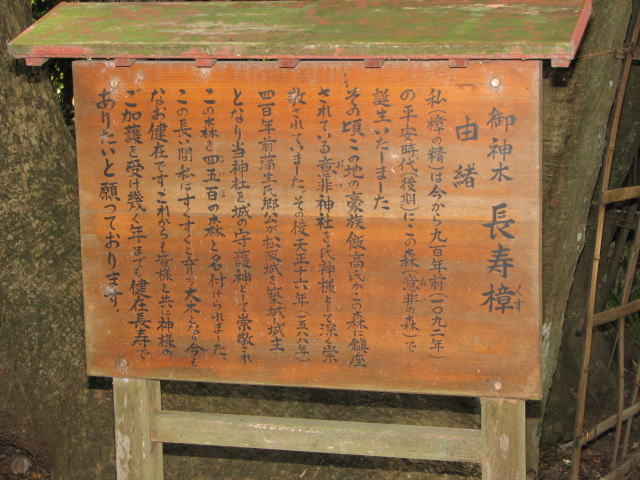 御神木 長寿樟
くす
由緒
私(樟の精)は今から九百年前(一〇九一年)
の平安時代後期にこの森(意非の森)で
おい
誕生いたしました
その頃この地の豪族飯高氏がこの森に鎮座
されている意非神社を氏神様として深く崇
おい
敬されていました。その後天正十六年(一五八八年)
四百年前蒲生氏郷公が松阪城を築城、城主
となり当神社を城の守護神として崇敬され
この森を四五百の森と名付けられました。
よいほ
この長い間私はすくすくと育つ大木となり今も
なお健在です。これからも皆様と共に神様の
ご加護を受け幾く年までも健在長寿で
ありたいと願っております。